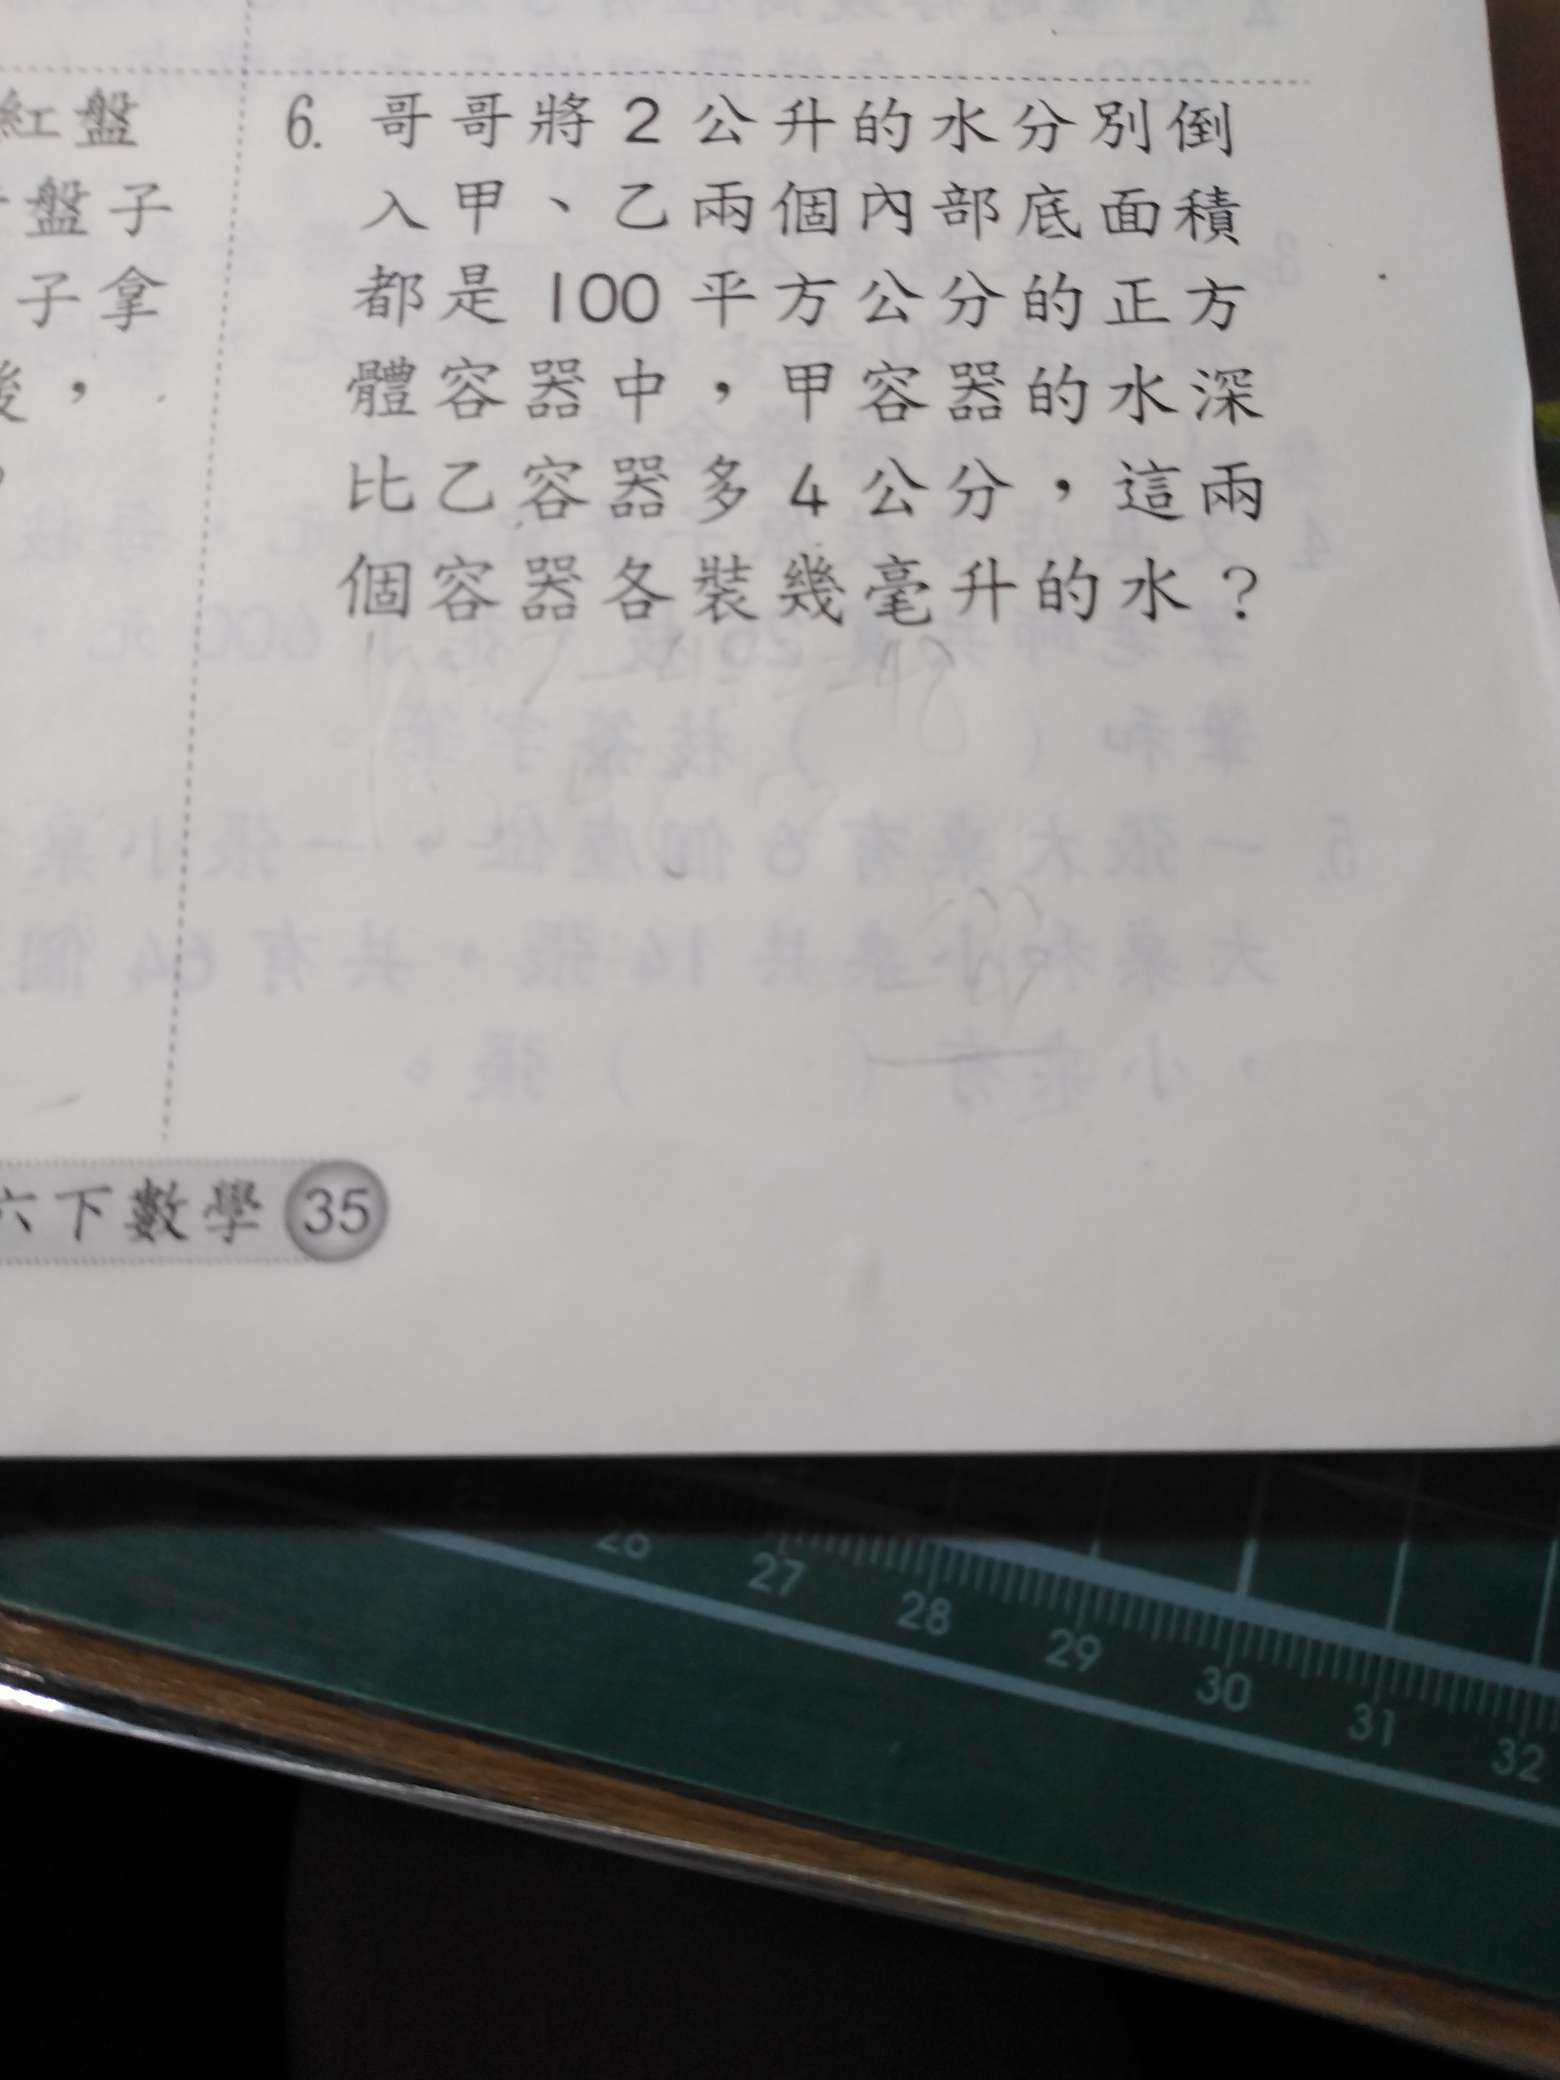 紅盤
盤子
子拿
後，
6. 哥哥將2公升的水分別倒
入甲、乙兩個內部底面積
都是100平方公分的正方
體容器中，甲容器的水深
比乙容器多4公分，這兩
個容器各裝幾毫升的水？
六下數學 35
26 27 28 29 30 31 32